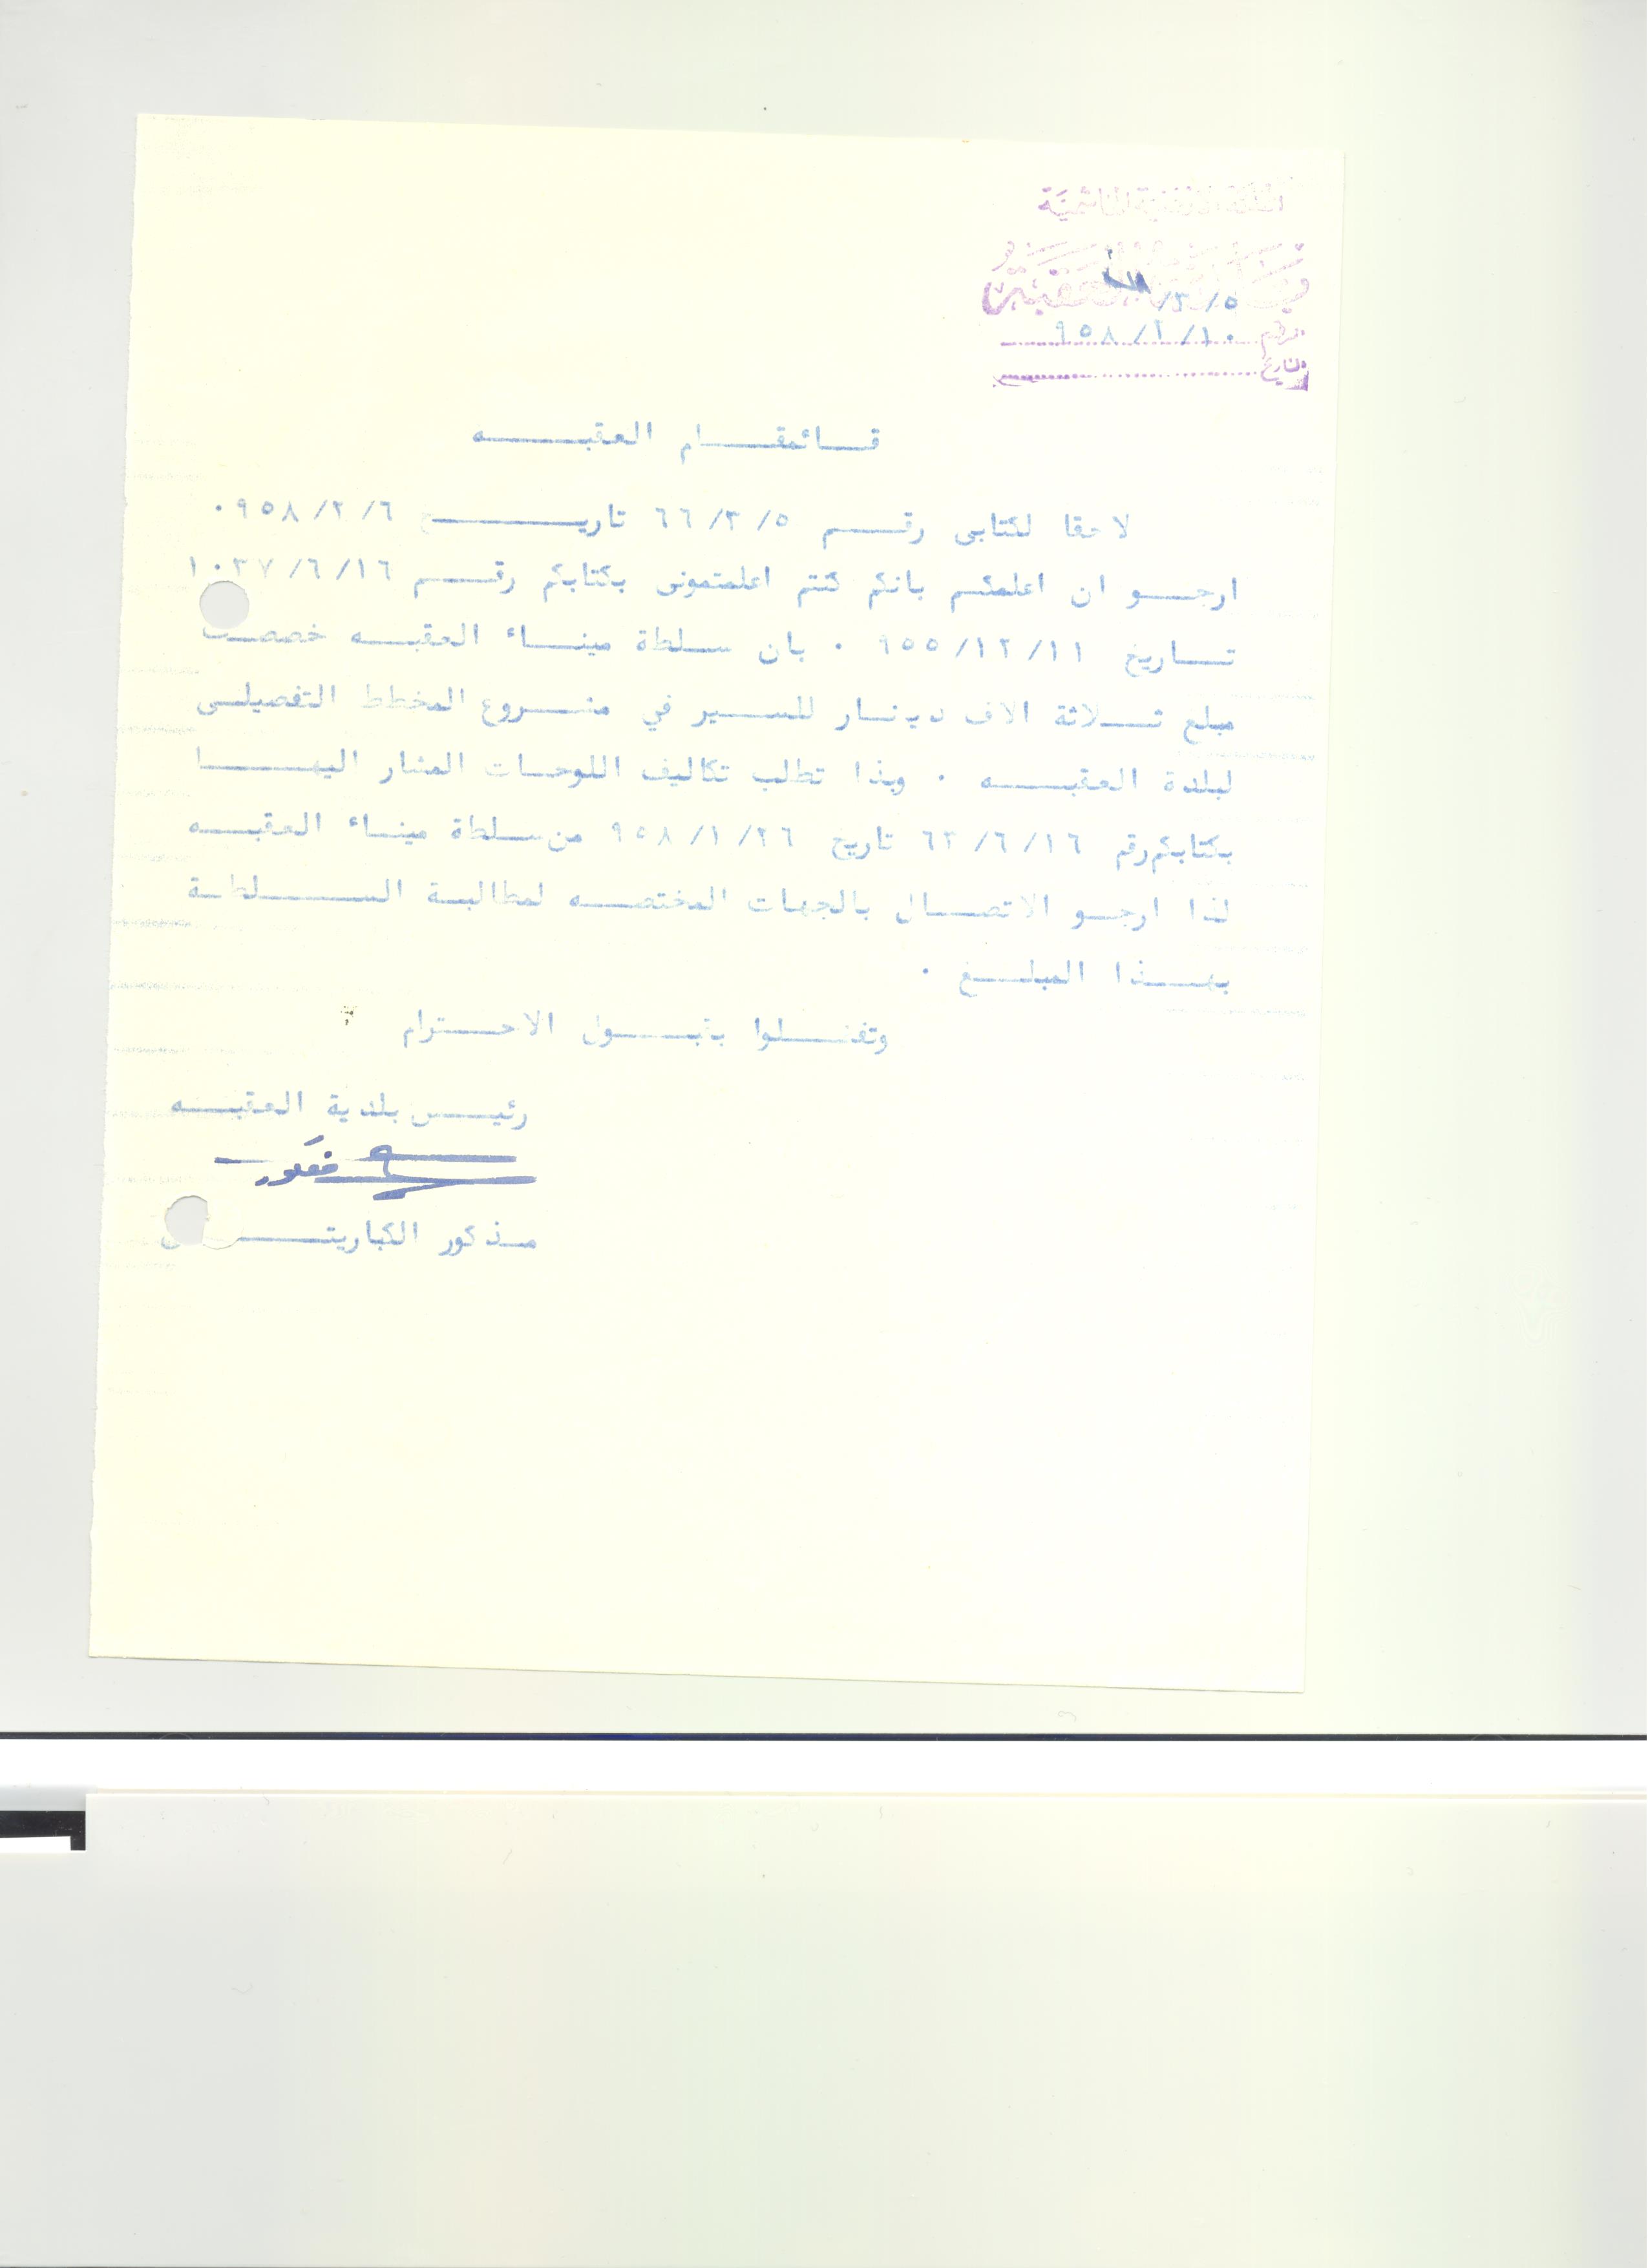 المملكة الاردنية الهاشمية
العقبة
٥/٣/
الرقم ٩٥٨/٢/١٠
التاريخ
قائمقام العقبه
لاحقا لكتابى رقم ٦٦/٣/٥ تاريخ ٩٥٨/٢/٦ ٠
ارجو ان اعلمكم بانكم كنتم اعلمتمونى بكتابكم رقم ١٠٣٧/٦/١٦
تاريخ ٩٥٥/١٢/١١ ٠ بان سلطة ميناء العقبه خصصت
مبلغ ثلاثة الاف دينار للسير في مشروع المخطط التفصيلى
لبلدة العقبه ٠ وبذا تطلب تكاليف اللوحات المشار اليها
بكتابكم رقم ٦٣/٦/١٦ تاريخ ٩٥٨/١/٢٦ من سلطة ميناء العقبه
لذا ارجو الاتصال بالجهات المختصه لمطالبة السلطة
بهذا المبلغ ٠
وتفضلوا بقبول الاحترام
رئيس بلدية العقبه
مذكور الكباريتى